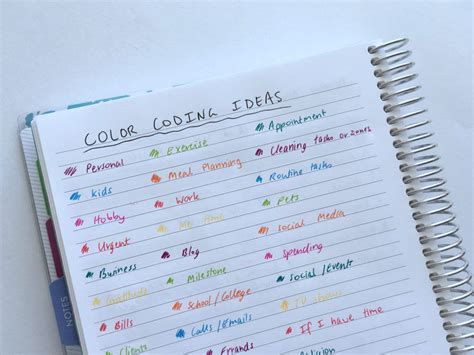 COLOR CODING IDEAS
Personal Exercise Appointment
Kids Meal Planning Cleaning tasks or zones
Hobby Work Routine tasks
Urgent Me time Pets
Business Blog Social Media
Gratitude Milestone Spending
Bills School/College Social/Events
Clients Calls/Emails TV shows
Errands If I have time
Religion
NOTES